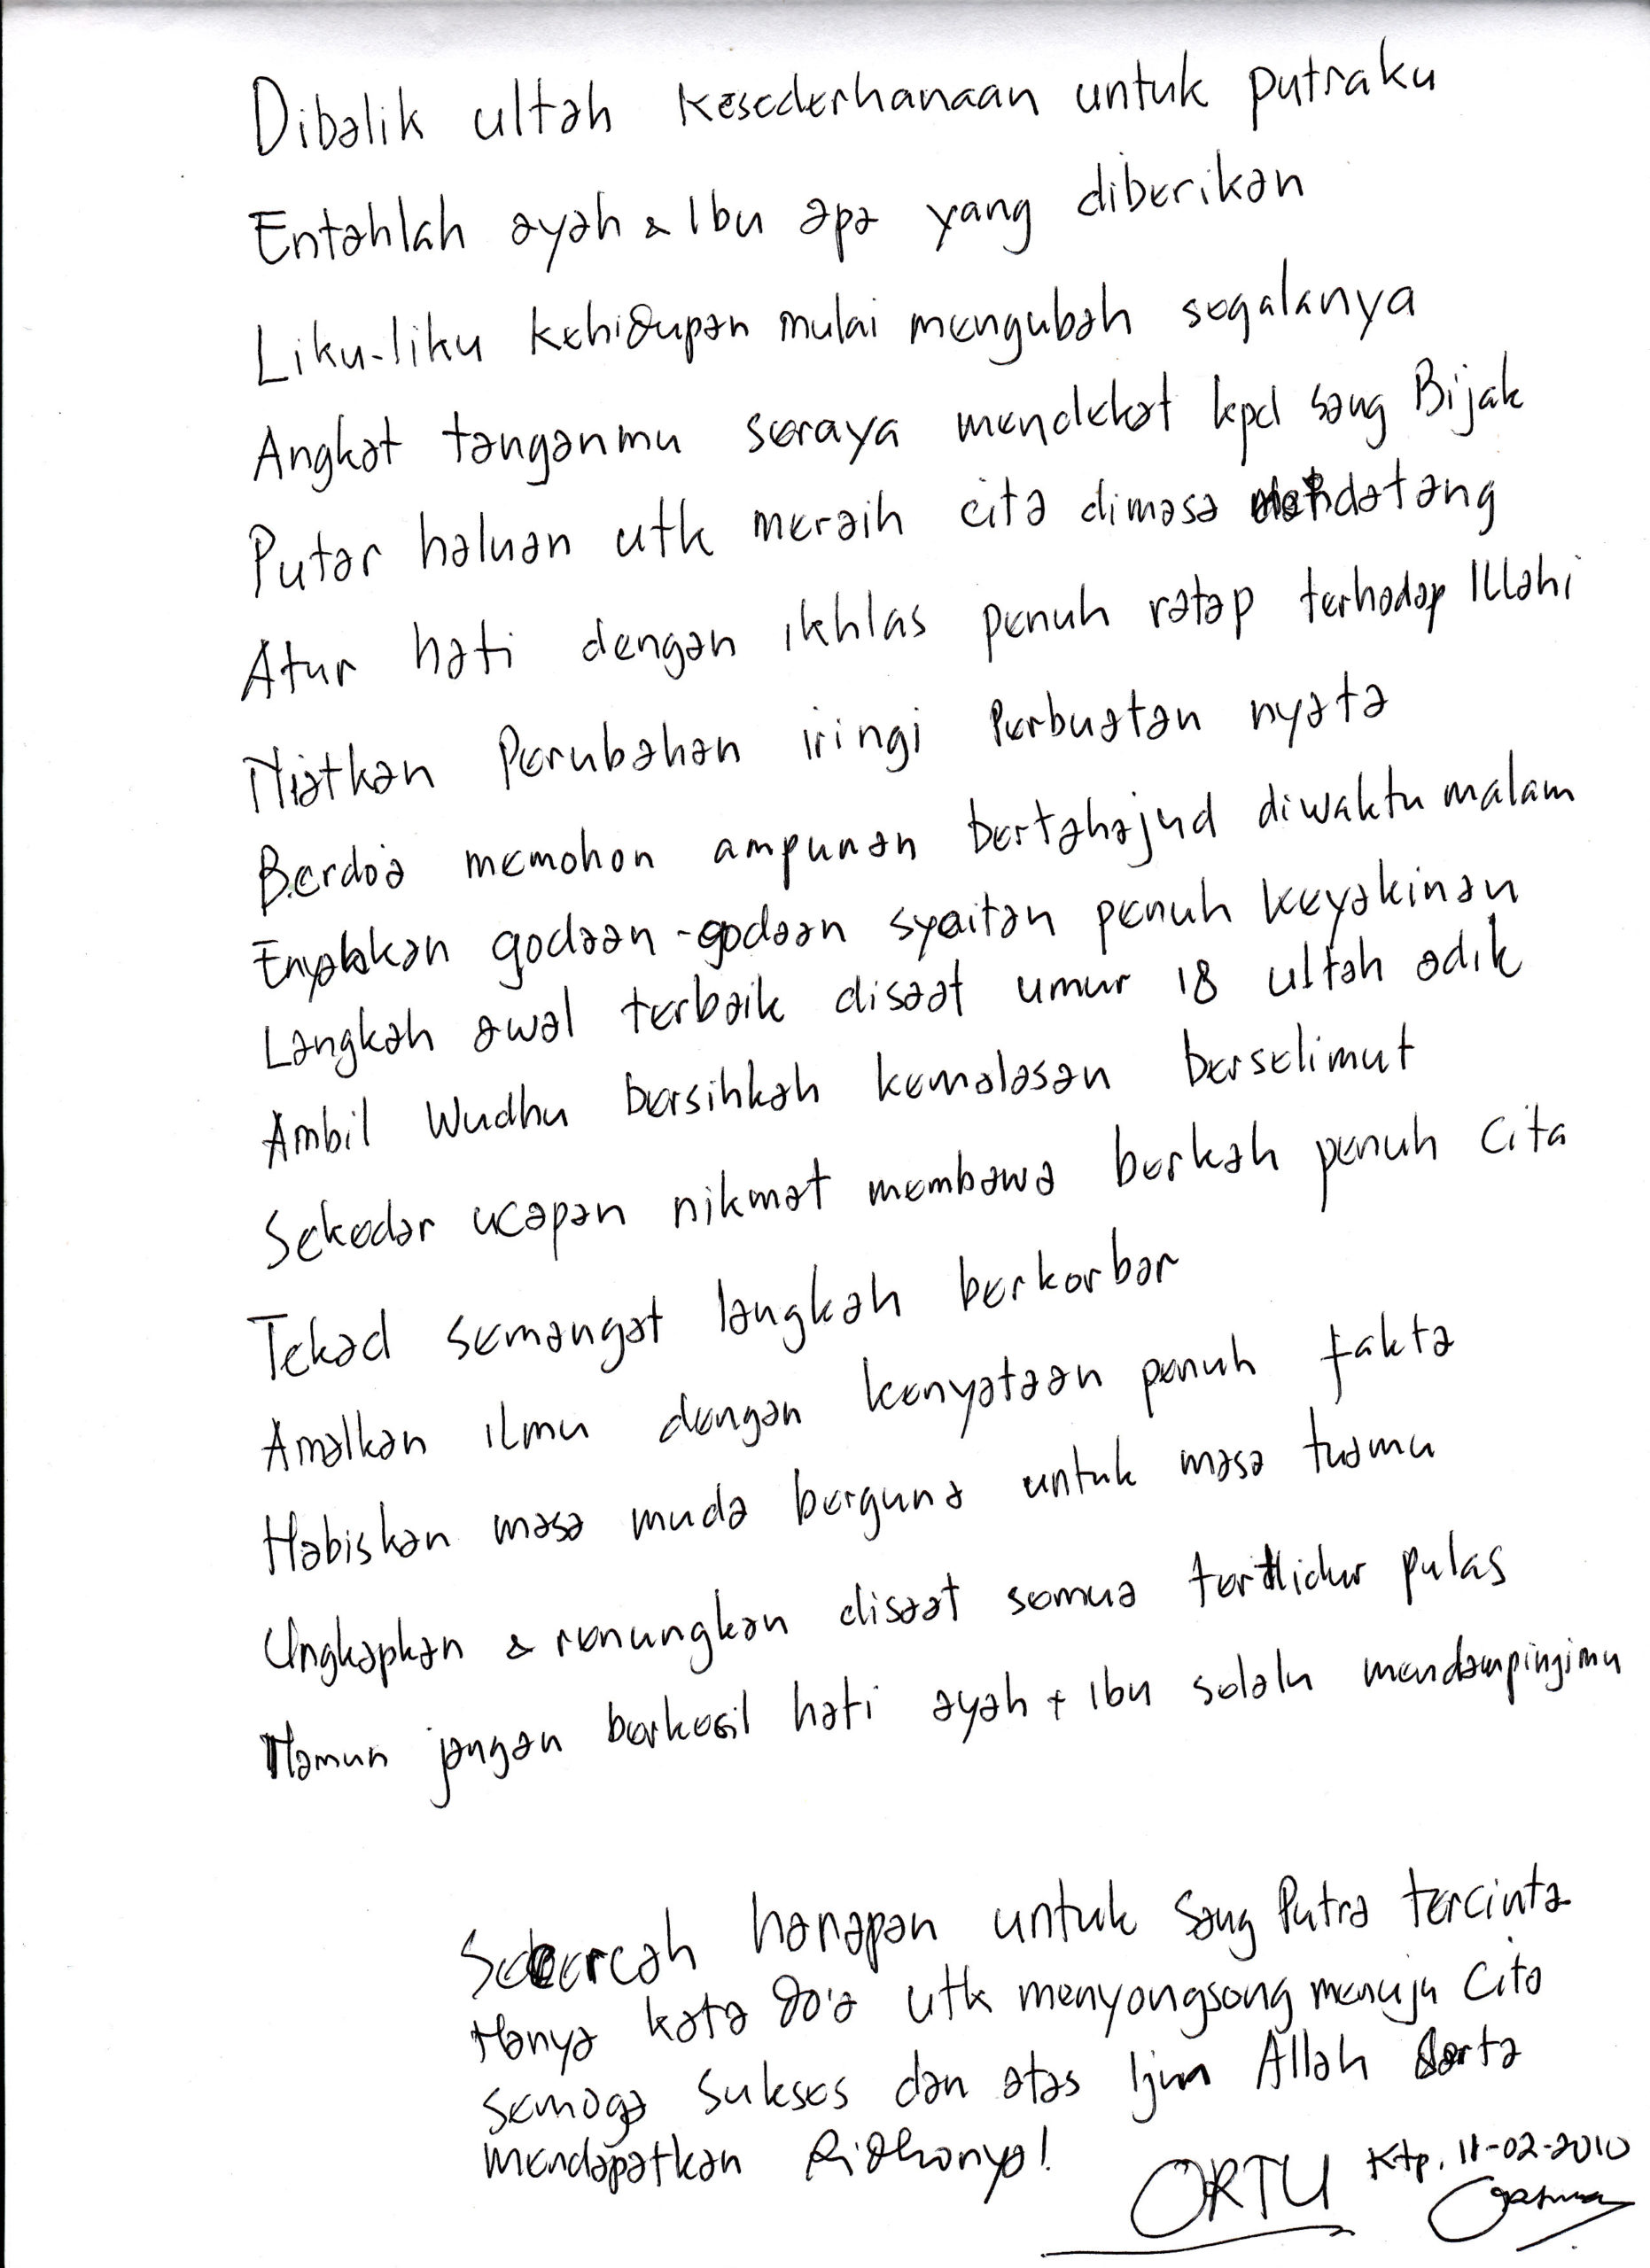 Dibalik ultah kesederhanaan untuk putraku
Entahlah ayah & Ibu apa yang diberikan
Liku-liku kehidupan mulai mengubah segalanya
Angkat tanganmu seraya mendekat kpd sang Bijak
Putar haluan utk meraih cita dimasa mendatang
Atur hati dengan ikhlas penuh ratap terhadap Illahi
Niatkan Perubahan iringi Perbuatan nyata
Berdo'a memohon ampunan bertahajud diwaktu malam
Enyakkan godaan-godaan syaitan penuh keyakinan
Langkah awal terbaik disaat umur 18 ultah adik
Ambil Wudhu bersihkah kemalasan berselimut
Sekedar ucapan nikmat membawa berkah penuh cita
Tekad semangat langkah berkorbar
Amalkan ilmu dengan kenyataan penuh fakta
Habiskan masa muda berguna untuk masa tuamu
Ungkapkan & renungkan disaat semua tertidur pulas
Namun jangan berkecil hati ayah + Ibu selalu mendampingimu
Sebercah harapan untuk Sang Putra tercinta
Hanya kata do'a utk menyongsong menuju Cita
semoga sukses dan atas Ijin Allah serta
mendapatkan Ridhonya!
ORTU Ktp. 11-02-2010